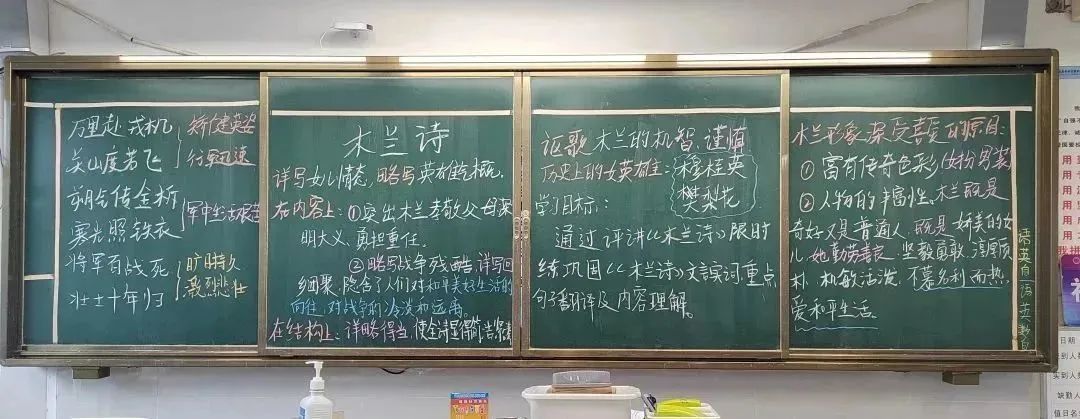 万里赴戎机
矫健英姿
关山度若飞
行军迅速
朔气传金柝
军中生活艰苦
寒光照铁衣
将军百战死
旷日持久
壮士十年归
激烈悲壮
木兰诗
详写女儿情态,略写英雄气概。
在内容上:①突出木兰孝敬父母深
明大义、勇担重任。
②略写战争残酷,详写回
细聚,隐含了人们对和平美好生活的
向往,对战争的冷淡和远离。
在结构上:详略得当,使全诗显得简洁紧凑
讴歌木兰的机智、谨慎
历史上的女英雄:穆桂英
樊梨花
学习目标:
通过评讲《木兰诗》限时
练巩固《木兰诗》文言词重点
句子翻译及内容理解。
木兰形象深受喜爱的原因:
①富有传奇色彩(女扮男装)
②人物的丰富性。木兰既是
奇好又是普通人,既是娇美的女
儿她勤劳善良、坚毅勇敢、淳厚质
朴、机敏活泼,不慕名利而热
爱和平生活。
语英自语英数自